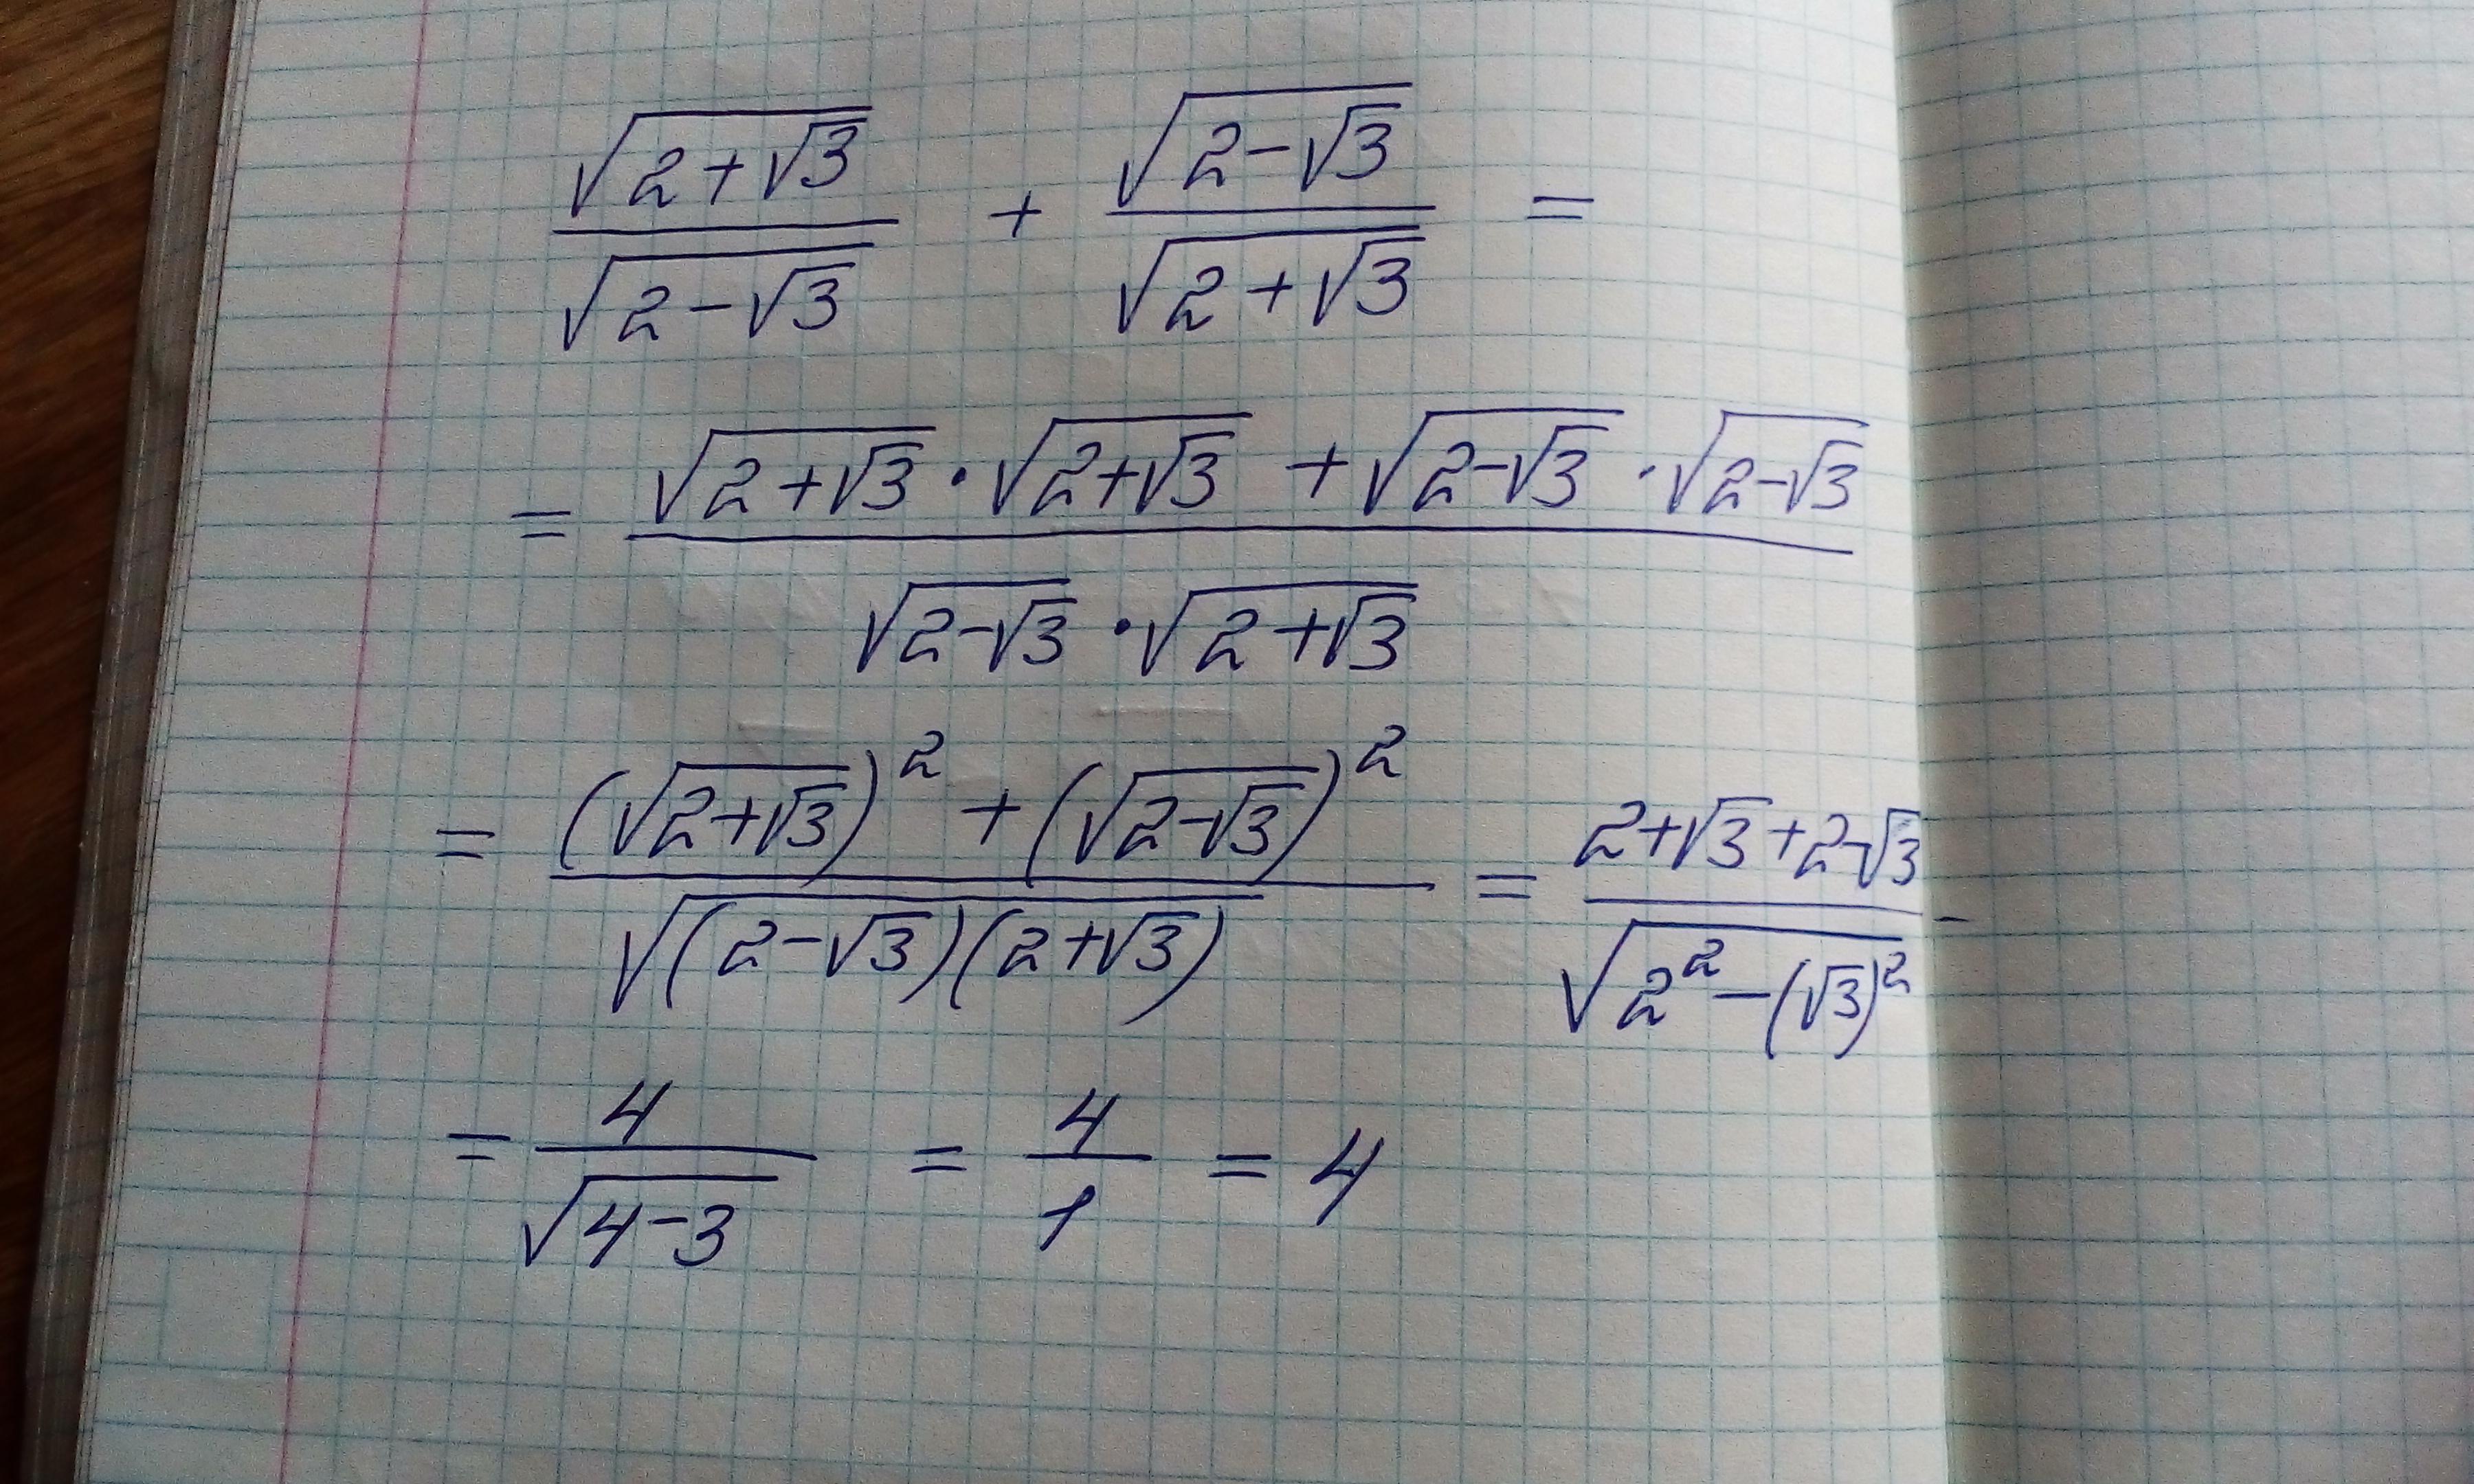 √(2+√3)/√(2-√3) + √(2-√3)/√(2+√3) =
= (√(2+√3)·√(2+√3) + √(2-√3)·√(2-√3))/(√(2-√3)·√(2+√3))
= ((√(2+√3))² + (√(2-√3))²)/√((2-√3)(2+√3)) = (2+√3+2-√3)/√(2²-(√3)²) -
= 4/√(4-3) = 4/1 = 4